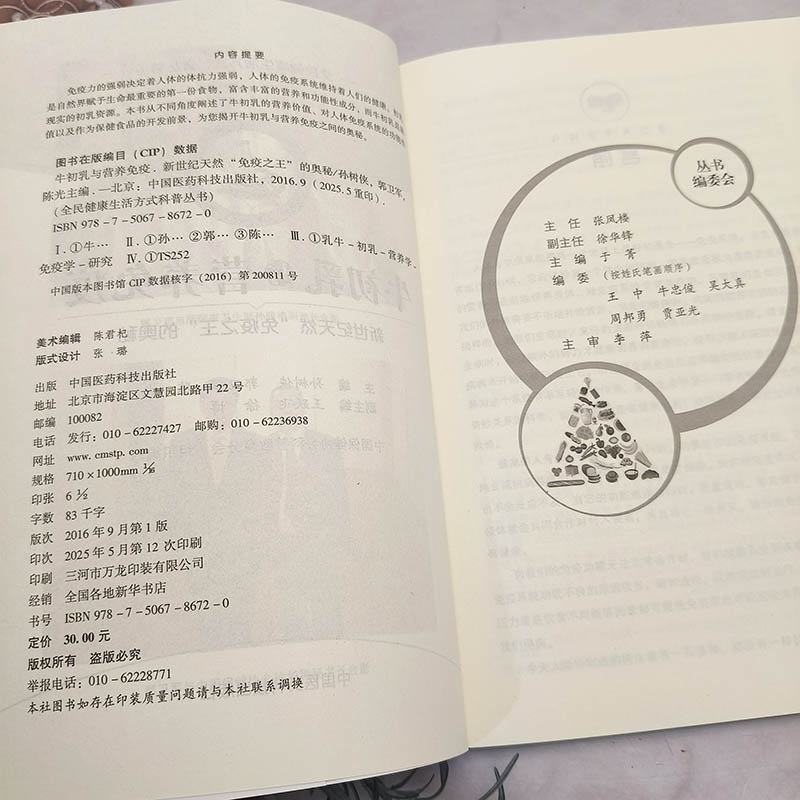 内容提要
免疫力的强弱决定着人体的体抗力强弱，人体的免疫系统维持着人们的健康，
是自然界赋予生命最重要的第一份食物，富含丰富的营养和功能性成分，而牛初乳是最
现实的初乳资源。本书从不同角度阐述了牛初乳的营养价值、对人体免疫系统的功能
值以及作为保健食品的开发前景，为您揭开牛初乳与营养免疫之间的奥秘。
图书在版编目（CIP）数据
牛初乳与营养免疫．新世纪天然“免疫之王”的奥秘/孙树侠，郭卫军，
陈光主编．—北京：中国医药科技出版社，2016.9（2025.5重印）．
（全民健康生活方式科普丛书）
ISBN 978-7-5067-8672-0
Ⅰ.①牛… Ⅱ.①孙…②郭…③陈… Ⅲ.①乳牛-初乳-营养学、
免疫学-研究 Ⅳ.①TS252
中国版本图书馆CIP数据核字（2016）第200811号
美术编辑 陈君杞
版式设计 张 璐
出版 中国医药科技出版社
地址 北京市海淀区文慧园北路甲22号
邮编 100082
电话 发行：010-62227427 邮购：010-62236938
网址 www.cmstp.com
规格 710×1000mm 1/16
印张 6 1/2
字数 83千字
版次 2016年9月第1版
印次 2025年5月第12次印刷
印刷 三河市万龙印装有限公司
经销 全国各地新华书店
书号 ISBN 978-7-5067-8672-0
定价 30.00元
版权所有 盗版必究
举报电话：010-62228771
本社图书如存在印装质量问题请与本社联系调换
丛书
编委会
主 任 张凤楼
副主任 徐华锋
主 编 于 菁
编 委 （按姓氏笔画顺序）
王 中 牛忠俊 吴大真
周邦勇 贾亚光
主 审 李 萍